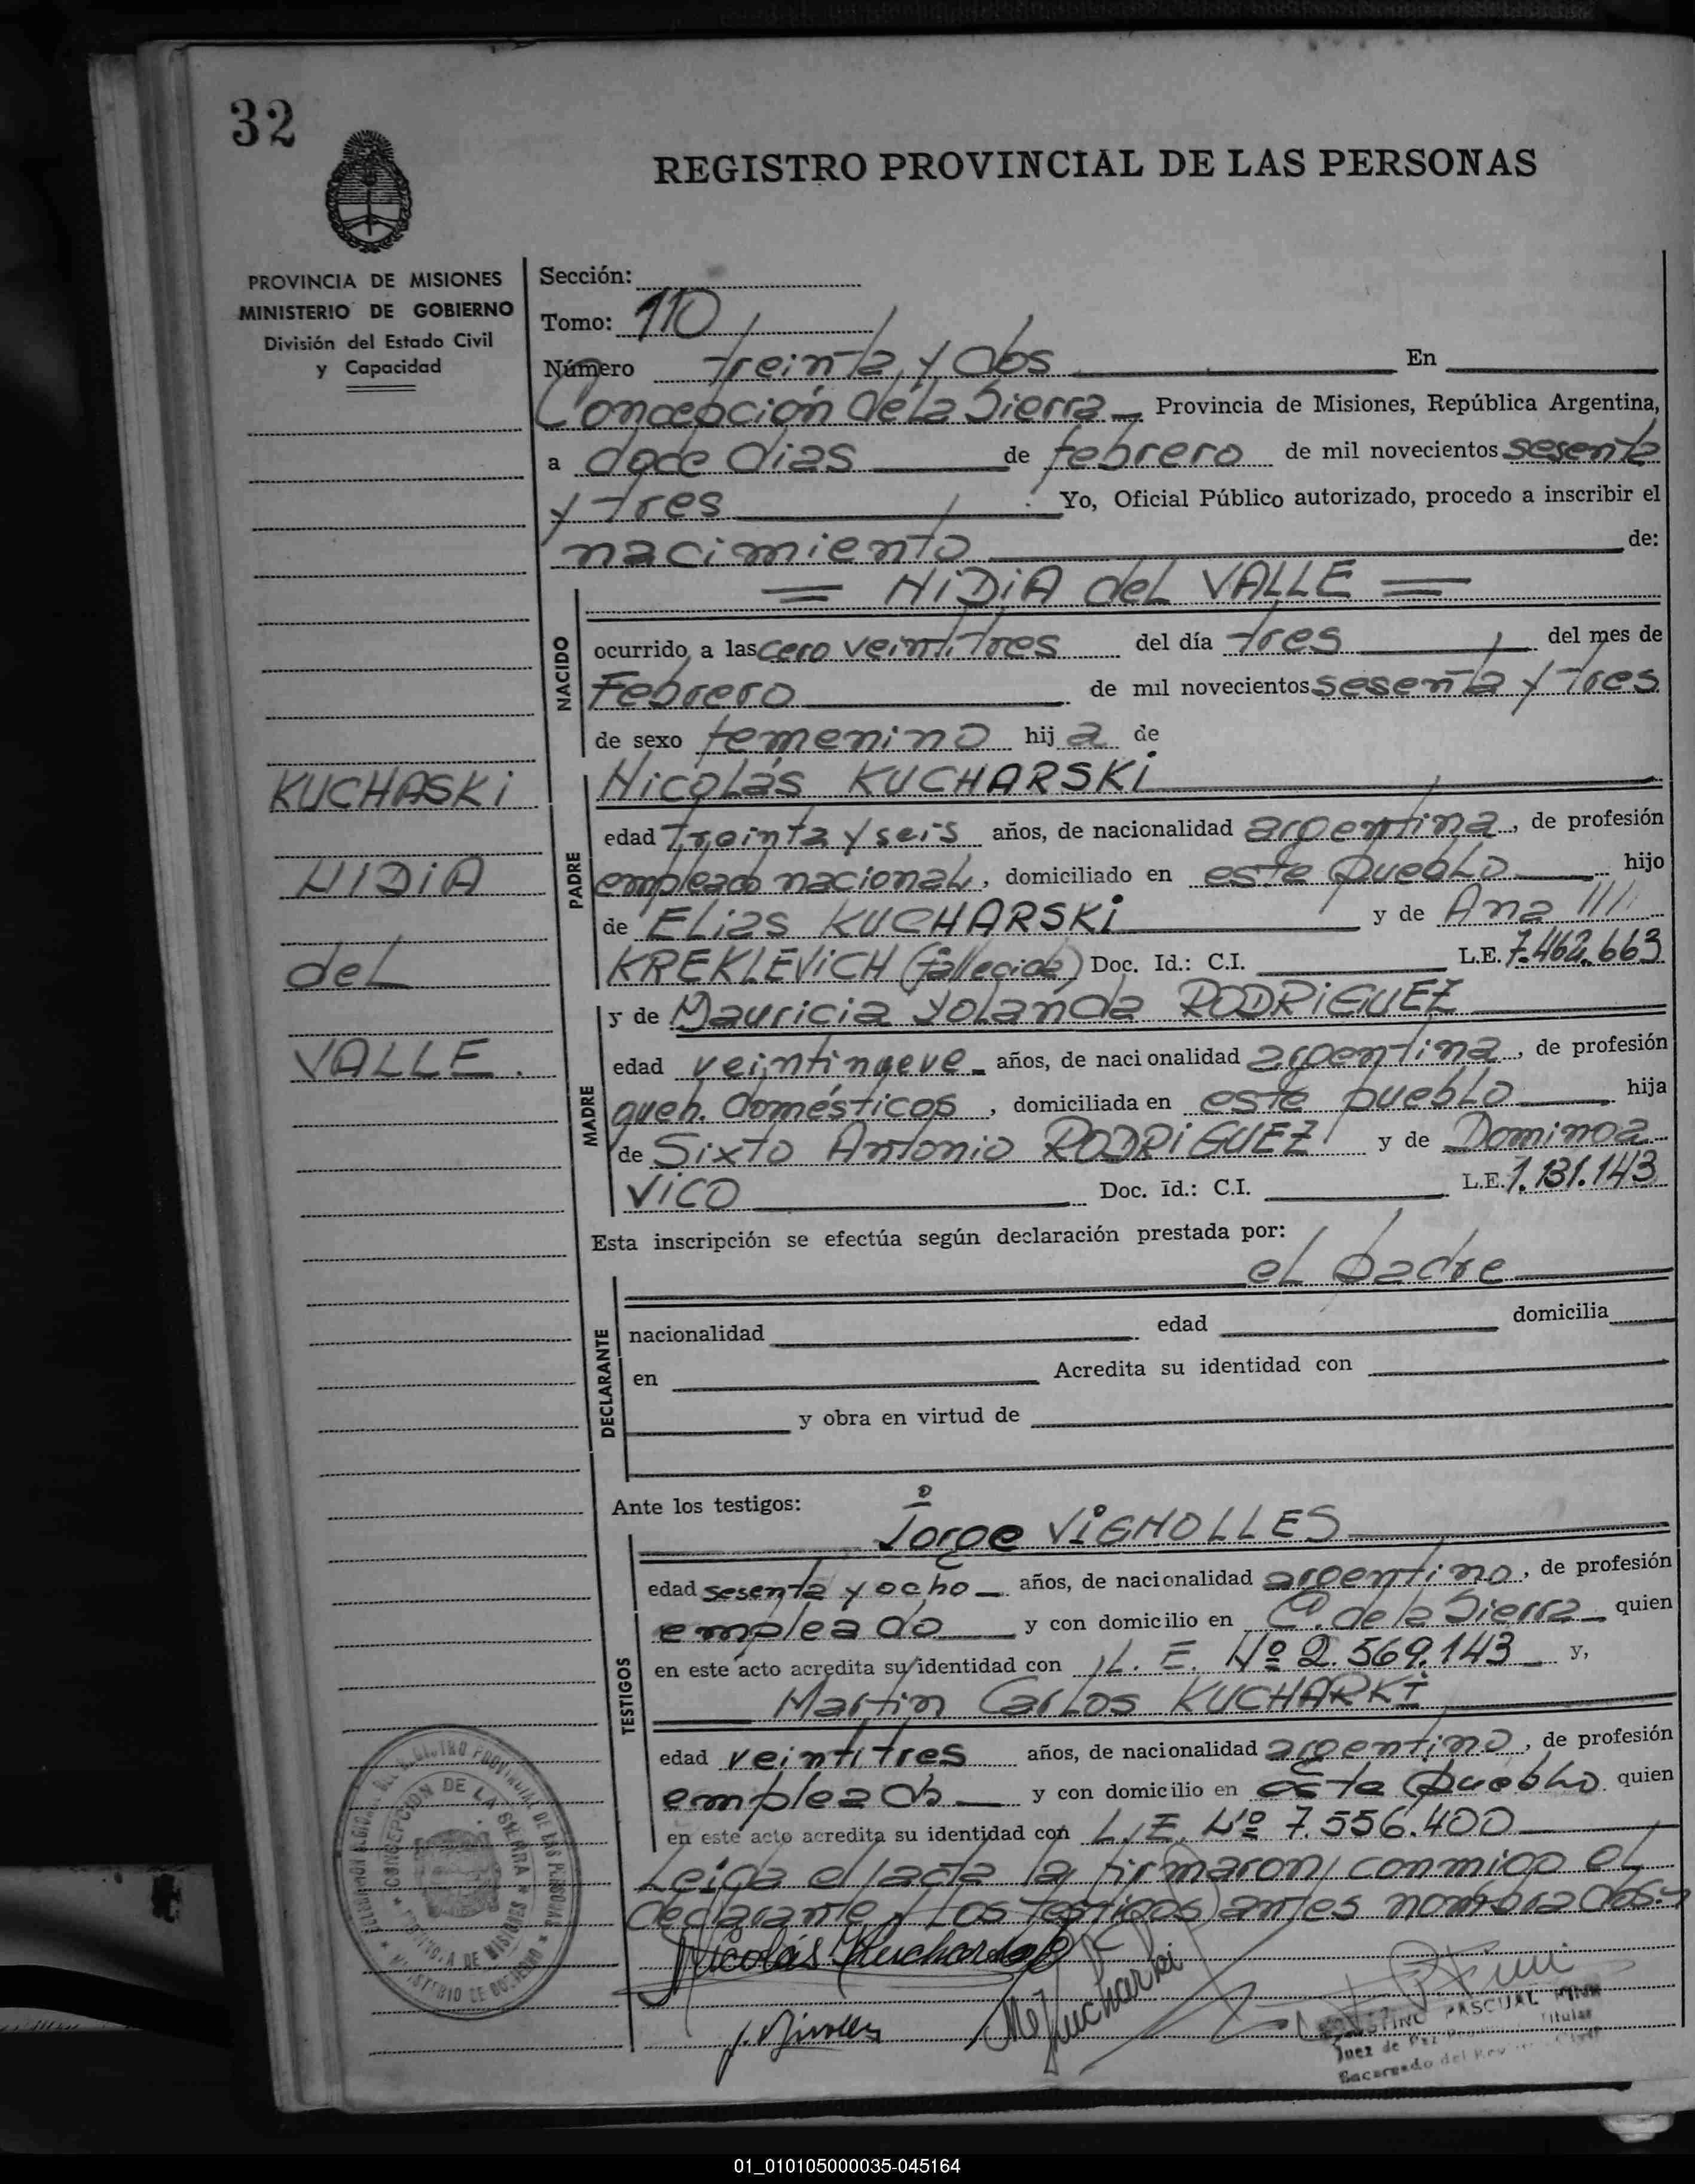 32
REGISTRO PROVINCIAL DE LAS PERSONAS
PROVINCIA DE MISIONES
MINISTERIO DE GOBIERNO
División del Estado Civil
y Capacidad
Sección:
Tomo: 110
Número treinta y dos En
Concepción de la Sierra Provincia de Misiones, República Argentina,
a doce dias de febrero de mil novecientos sesenta
y tres Yo, Oficial Público autorizado, procedo a inscribir el
nacimiento de:
= NIDIA del VALLE =
NACIDO
ocurrido a las cero veintitres del día tres del mes de
Febrero de mil novecientos sesenta y tres
de sexo femenino hija de
KUCHASKI
NIDIA
del
VALLE.
PADRE
Nicolás KUCHARSKI
edad treinta y seis años, de nacionalidad argentina, de profesión
empleado nacional, domiciliado en este pueblo hijo
de Elias KUCHARSKI y de Ana ///
KREKLEVICH (fallecida) Doc. Id.: C.I. L.E. 7.462.663
MADRE
y de Mauricia Yolanda RODRIGUEZ
edad veintinueve años, de nacionalidad argentina, de profesión
queh. domésticos, domiciliada en este pueblo hija
de Sixto Antonio RODRIGUEZ y de Dominga
VICO Doc. Id.: C.I. L.E. 1.131.143
Esta inscripción se efectúa según declaración prestada por:
el padre
DECLARANTE
nacionalidad edad domicilia
en Acredita su identidad con
y obra en virtud de
Ante los testigos:
Jorge VIGNOLLES
TESTIGOS
edad sesenta y ocho años, de nacionalidad argentino, de profesión
empleado y con domicilio en C. de la Sierra quien
en este acto acredita su identidad con L. E. Nº 2.569.143 y,
Martin Carlos KUCHARKI
edad veintitres años, de nacionalidad argentino, de profesión
empleado y con domicilio en este pueblo quien
en este acto acredita su identidad con L. E. Nº 7.556.400
Leida el acta la firmaron conmigo el
declarante y los testigos antes nombrados.
Nicolás Kucharski
PASCUAL
Juez de Paz Titular
Encargado del
CONCEPCION DE LA SIERRA
01_010105000035-045164